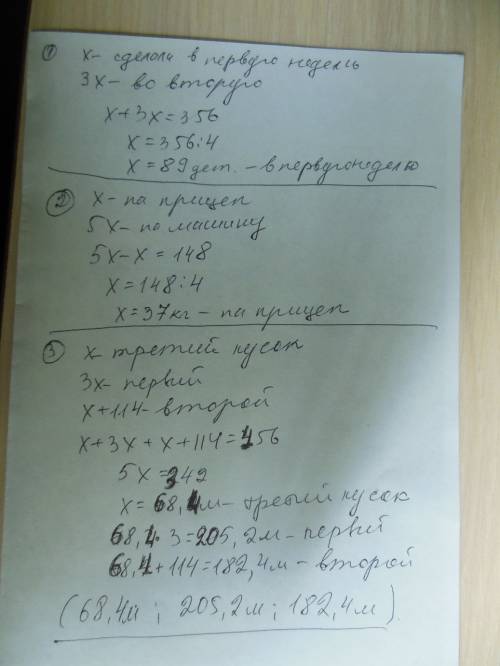 ① х - сделали в первую недель
3х - во вторую
х + 3х = 356
х = 356:4
х = 89 дет. - в первую неделю
② х - на прицеп
5х - на машину
5х - х = 148
х = 148:4
х = 37 кг - на прицеп
③ х - третий кусок
3х - первый
х + 114 - второй
х + 3х + х + 114 = 456
5х = 342
х = 68,4 м - третий кусок
68,4 · 3 = 205,2 м - первый
68,4 + 114 = 182,4 м - второй
(68,4 м ; 205,2 м ; 182,4 м)